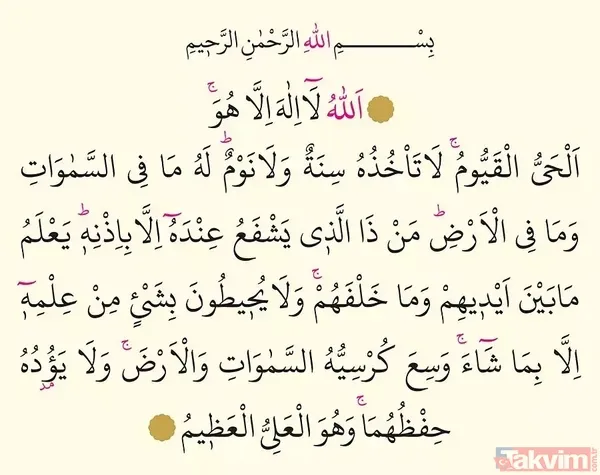 بِسْــــــــمِ اللهِ الرَّحْمٰنِ الرَّحٖيمِ
اَللهُ لَٓا اِلٰهَ اِلَّا هُوَۚ
اَلْحَىُّ الْقَيُّومُۚ لَا تَأْخُذُهُ سِنَةٌ وَلَا نَوْمٌؕ لَهُ مَا فِى السَّمٰوَاتِ
وَمَا فِى الْاَرْضِؕ مَنْ ذَا الَّذٖى يَشْفَعُ عِنْدَهُٓ اِلَّا بِاِذْنِهٖؕ يَعْلَمُ
مَا بَيْنَ اَيْدٖيهِمْ وَمَا خَلْفَهُمْۚ وَلَا يُحٖيطُونَ بِشَىْءٍ مِنْ عِلْمِهٖٓ
اِلَّا بِمَا شَٓاءَۚ وَسِعَ كُرْسِيُّهُ السَّمٰوَاتِ وَالْاَرْضَۚ وَلَا يَؤُ۫دُهُ
حِفْظُهُمَاۚ وَهُوَ الْعَلِىُّ الْعَظٖيمُ
Takvim